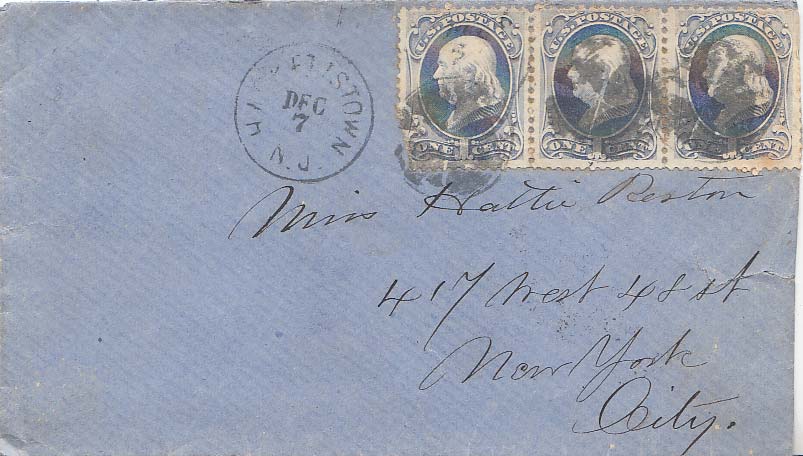 U.S. POSTAGE U.S. POSTAGE U.S. POSTAGE
ONE CENT ONE CENT ONE CENT
HACKETTSTOWN N.J.
DEC
7
Miss Hattie Reston
417 West 48 st
New York
City.